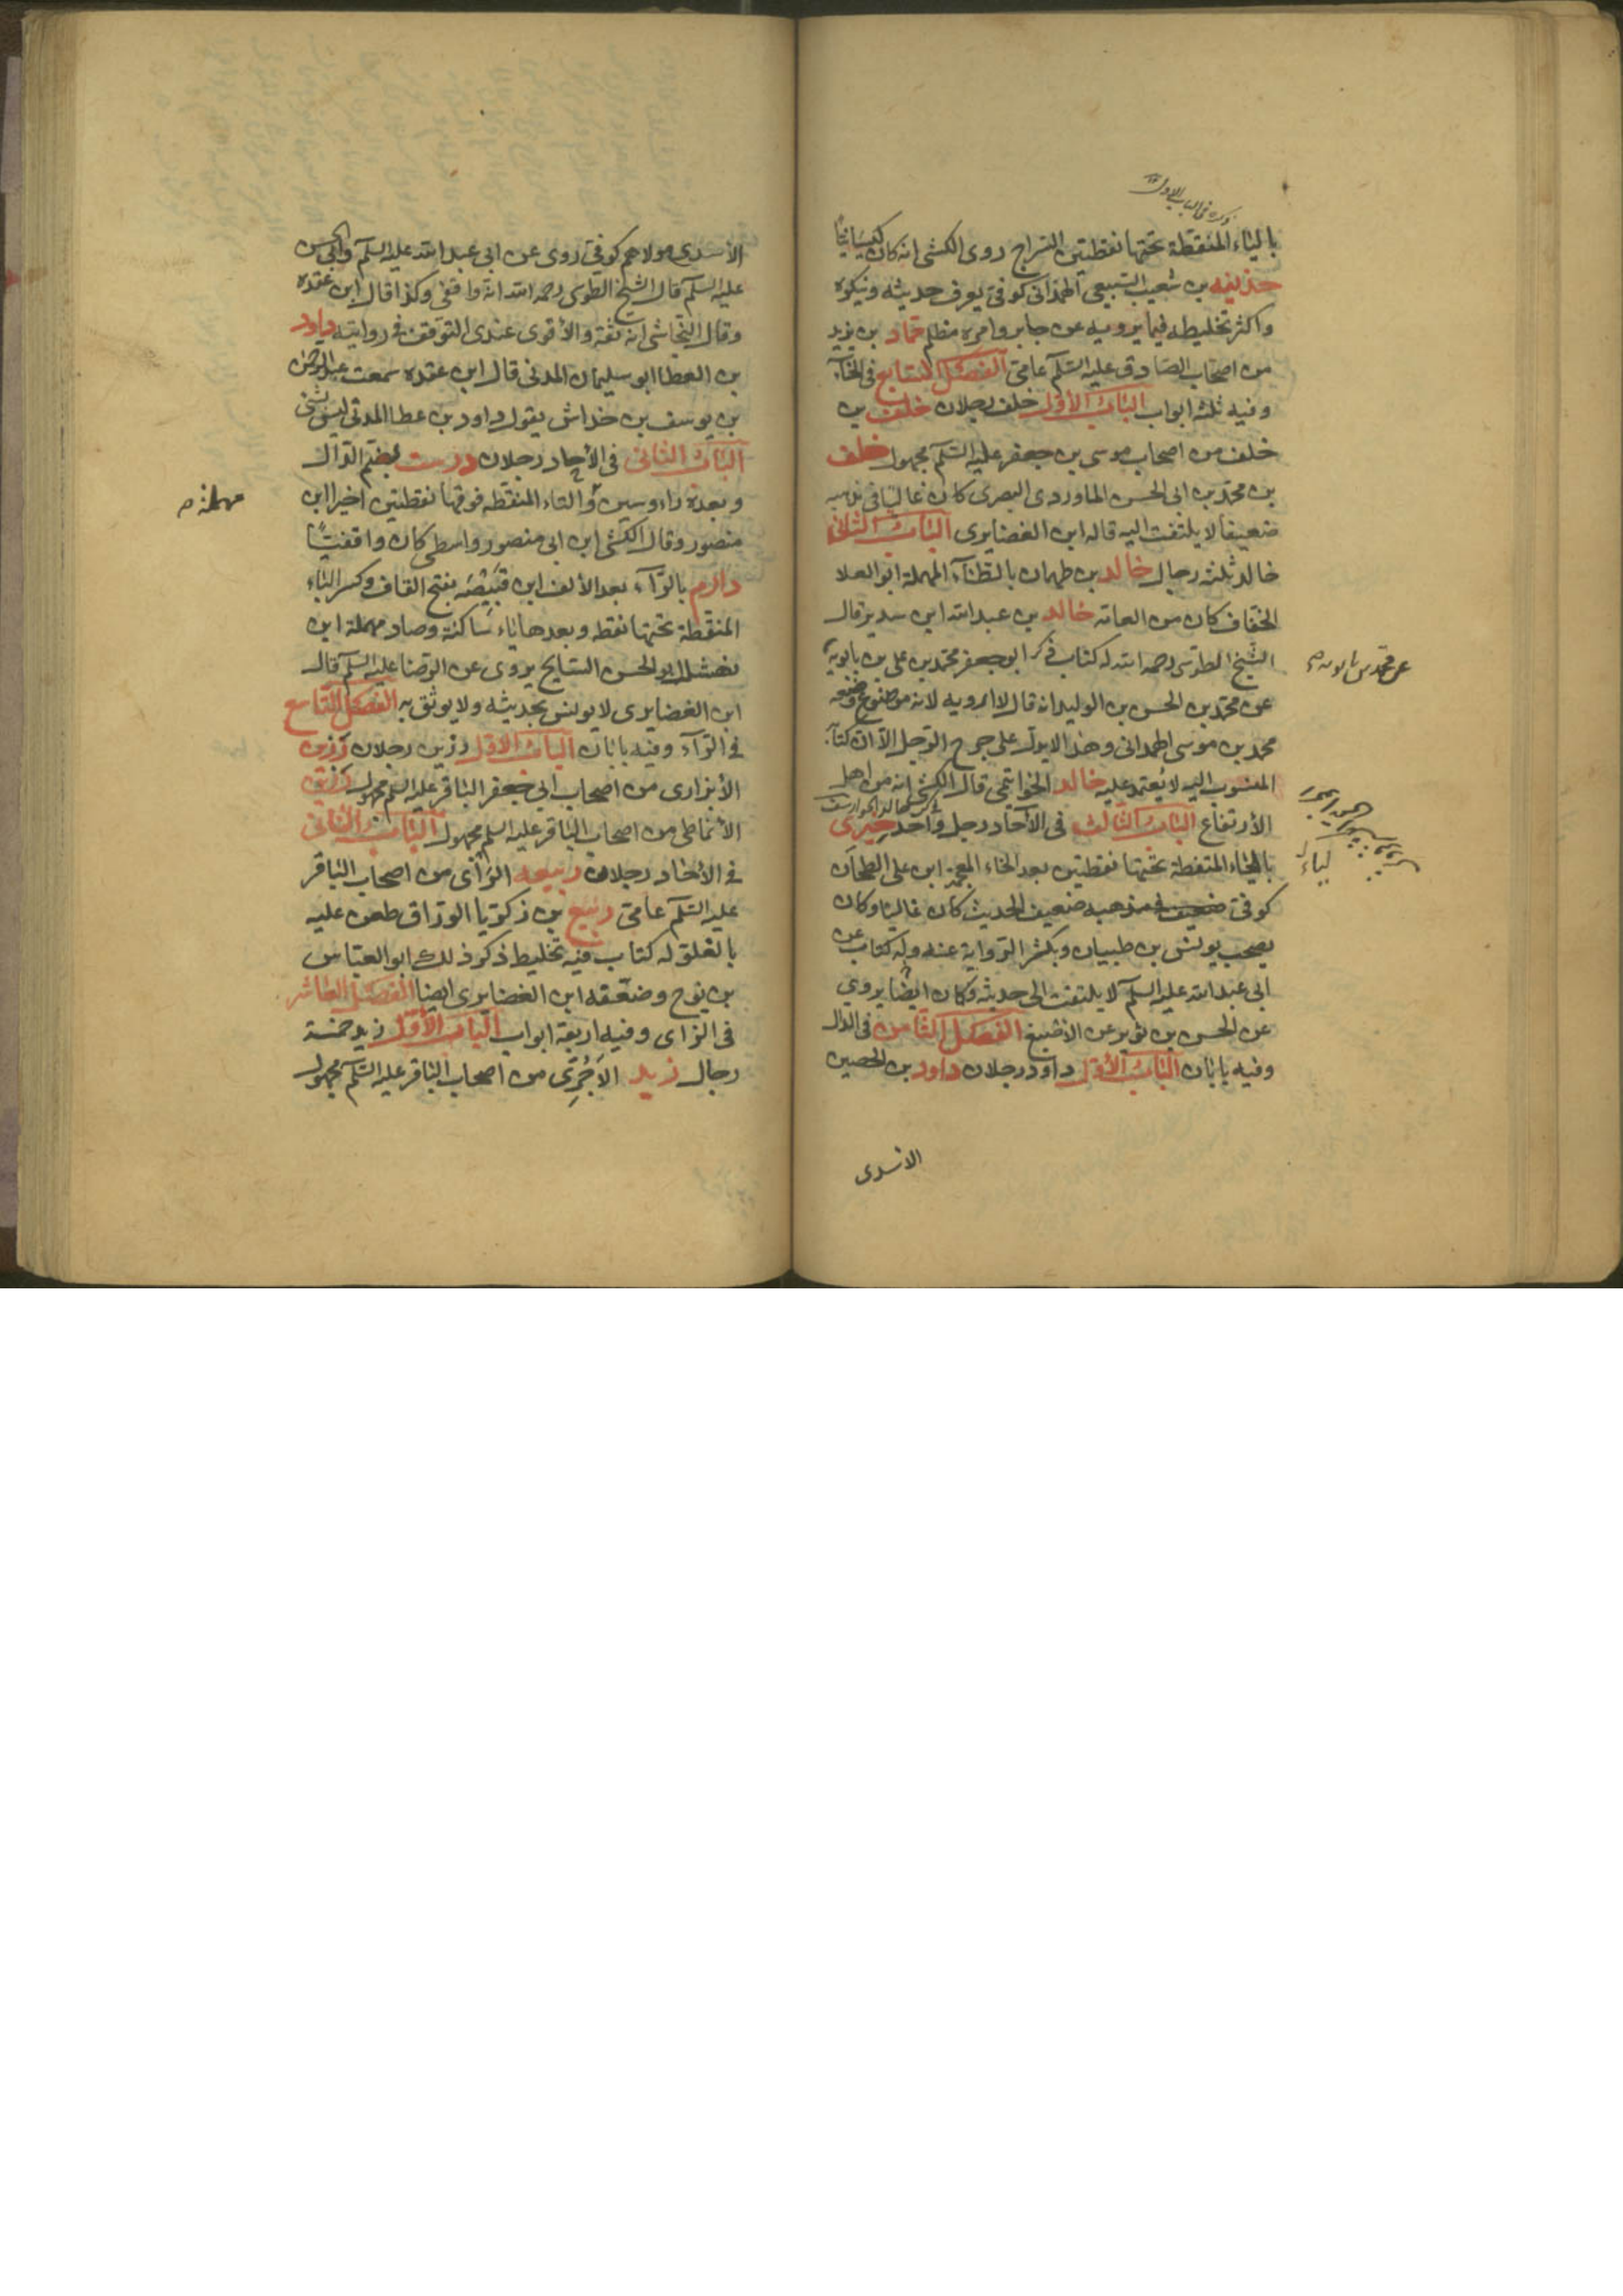 بالياء المنقطة تحتها نقطتين السراج روى الكشى انه كان كيسانيا
حذيفه بن شعيب السبيعى الهمدانى كوفى يعرف حديثه وينكره
واكثر تخليطه فيما يرويه عن جابر وامره مظلم حماد بن يزيد
من اصحاب الصادق عليه السلم عامى الفصل السابع فى الخاء
وفيه ثلثه ابواب الباب الأول خلف رجلان خلف بن
خلف من اصحاب موسى بن جعفر عليه السلم مجهول خلف
بن محمد بن ابى الحسن الماوردى البصرى كان غاليا فى مذهبه
ضعيفا لا يلتفت اليه قاله ابن الغضايرى الباب الثانى
خالد ثلثه رجال خالد بن طهمان بالطاء المهملة ابو العلا
الخفاف كان من العامه خالد بن عبد الله ابن سدير قال
الشيخ الطوسى رحمه الله له كتاب ذكر ابو جعفر محمد بن على بن بابويه
عن محمد بن الحسن بن الوليد انه قال لا ارويه لانه موضوع وضعه
محمد بن موسى الهمدانى وهذا لا يدل على جرح الرجل الا ان كتابه
المنسوب اليه لا يعتمد عليه خالد الخواتيمى قال الكشى انه من اهل
الأرتفاع الباب الثالث فى الآحاد رجل واحد خيرى
بالياء المنقطة تحتها نقطتين بعد الخاء المعجمة ابن على الطحان
كوفى ضعيف فى مذهبه ضعيف الحديث كان غاليا وكان
يصحب يونس بن ظبيان ويكثر الرواية عنه وله كتاب عن
ابى عبد الله عليه السلم لا يلتفت الى حديثه وكان ايضا يروى
عن الحسن بن ثوير عن الأصبغ الفصل الثامن فى الدال
وفيه بابان الباب الأول داود رجلان داود بن الحصين
الاسدى
الأسدى مولاهم كوفى روى عن ابى عبد الله عليه السلم وابى الحسن
عليه السلم قال الشيخ الطوسى رحمه الله انه واقفى وكذا قال ابن عقده
وقال النجاشى انه ثقه والأقوى عندى التوقف فى روايته داود
بن العطا ابو سليمان المدنى قال ابن عقده سمعت عبد الرحمن
بن يوسف بن خداش يقول داود بن عطا المدنى ليس بشى
الباب الثانى فى الآحاد رجلان درست بضم الدال
وبعده راء وسين والتاء المنقطه فوقها نقطتين اخيرا ابن
مهملة
منصور وقال الكشى ابن ابى منصور واسطى كان واقفيا
دارم بالراء بعد الألف ابن قبيصه بفتح القاف وكسر الباء
المنقطة تحتها نقطه وبعدها ياء ساكنة وصاد مهملة ابن
نهشل ابو الحسن السايح يروى عن الرضا عليه السلم قال
ابن الغضايرى لا يونس بحديثه ولا يوثق به الفصل التاسع
فى الراء وفيه بابان الباب الأول رزين رجلان رزين
الأبزارى من اصحاب ابى جعفر الباقر عليه السلم مجهول رزين
الأنماطى من اصحاب الباقر عليه السلم مجهول الباب الثانى
فى الآحاد رجلان ربيعه الراى من اصحاب الباقر
عليه السلم عامى ربيع بن زكريا الوراق طعن عليه
بالغلو له كتاب فيه تخليط ذكر ذلك ابو العباس
بن نوح وضعفه ابن الغضايرى ايضا الفصل العاشر
فى الزاى وفيه اربعة ابواب الباب الأول زيد خمسة
رجال زيد الآجرى من اصحاب الباقر عليه السلم مجهول